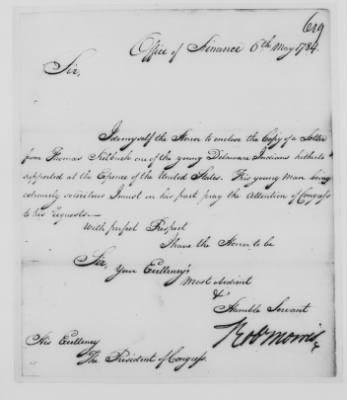 619
Office of Finance 6th May 1784.
Sir,
I do myself the Honor to enclose the Copy of a Letter
from Thomas Killbuck one of the young Delaware Indians hitherto
supported at the Expence of the United States. This young Man being
extremely solicitous I must on his part pray the Attention of Congress
to his requests.—
With perfect Respect
I have the Honor to be
Sir,
Your Excellency's
Most obedient
&
Humble Servant
Rob Morris
His Excellency
The President of Congress